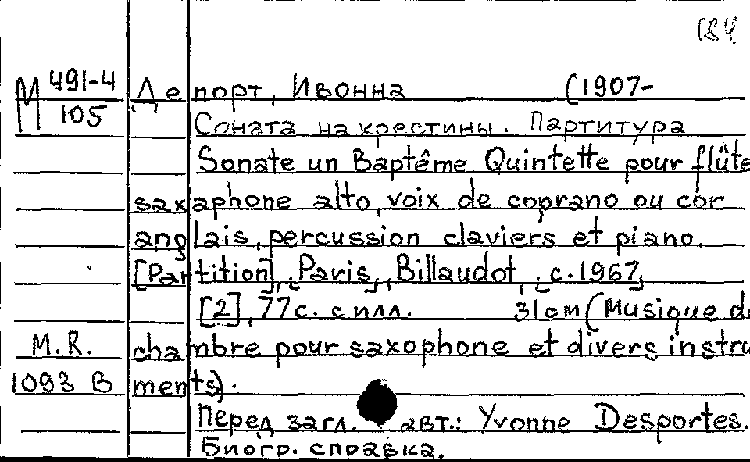 184
М 491-4 Депорт, Ивонна (1907-
105 Соната на крестины. Партитура
Sonate un Baptême Quintette pour flûte
saxaphone alto, voix de coprano ou cor
anglais, percussion claviers et piano.
[Partition], Paris, Billaudot, c. 1967,
[2], 77 с. с илл. 31 см (Musique de
M.R. chambre pour saxophone et divers instru
1093 B ments).
Перед загл. авт.: Yvonne Desportes.
Биогр. справка.